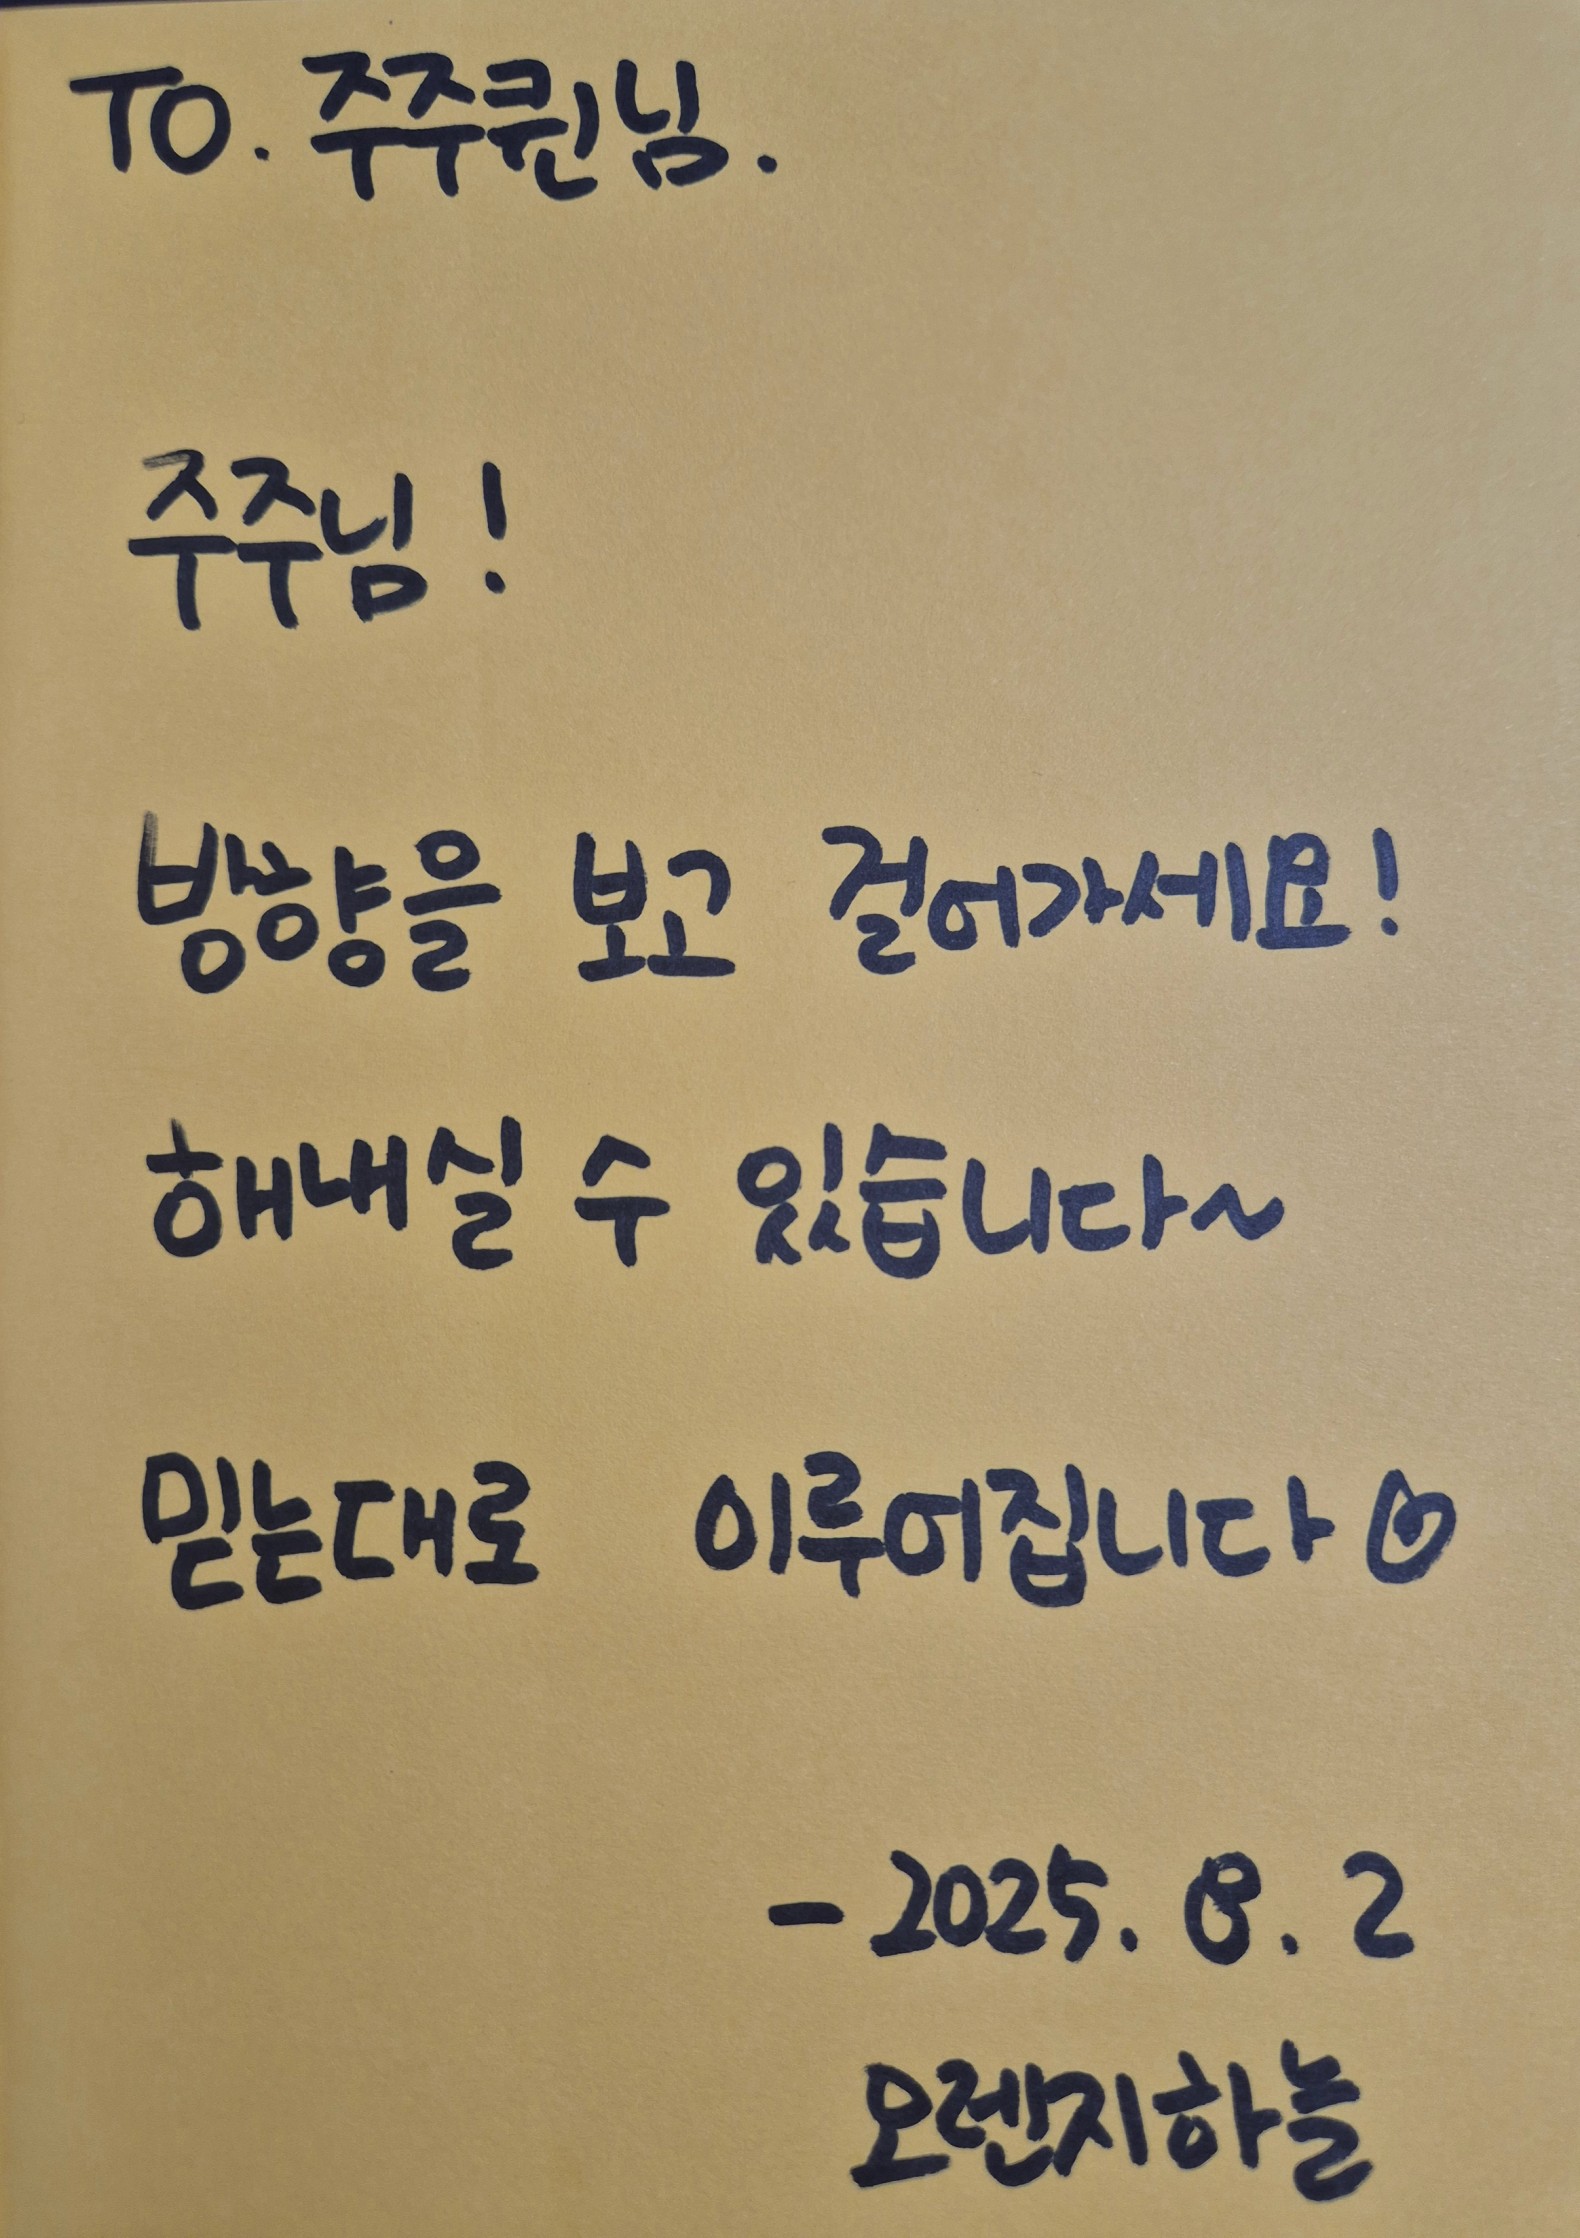 TO. 주주퀸님.
주주님!
방향을 보고 걸어가세요!
해내실 수 있습니다~
믿는대로 이루어집니다
- 2025. 8. 2
오렌지하늘